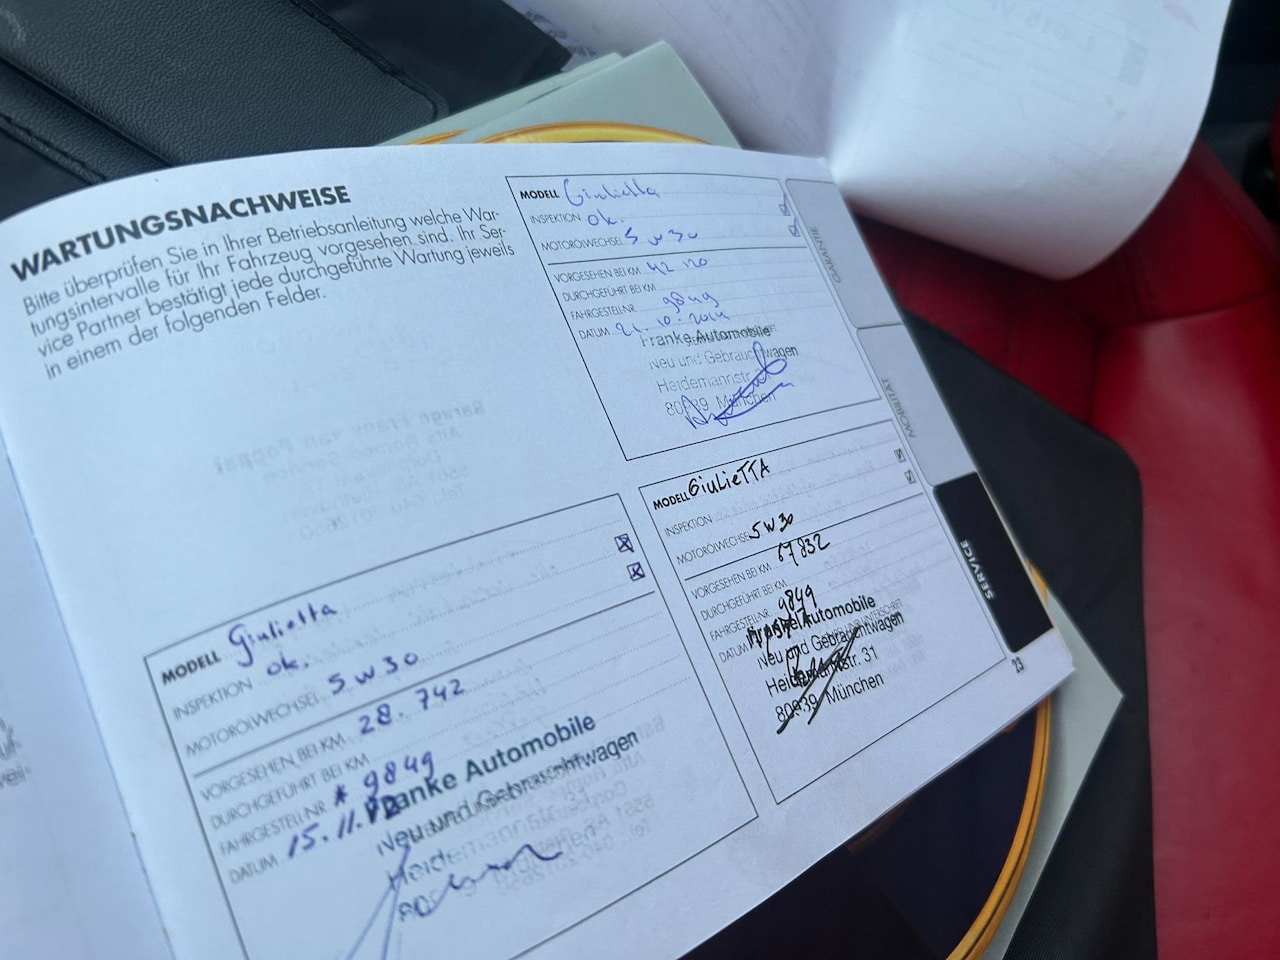 WARTUNGSNACHWEISE
Bitte überprüfen Sie in Ihrer Betriebsanleitung welche War-
tungsintervalle für Ihr Fahrzeug vorgesehen sind. Ihr Ser-
vice Partner bestätigt jede durchgeführte Wartung jeweils
in einem der folgenden Felder.
MODELL Giulietta
INSPEKTION ok.
MOTORÖLWECHSEL 5 W 30
VORGESEHEN BEI KM 28.742
DURCHGEFÜHRT BEI KM
FAHRGESTELLNR * 9849
DATUM 15.11.
Franke Automobile
Neu und Gebrauchtwagen
MODELL Giulietta
INSPEKTION ok.
MOTORÖLWECHSEL 5 W 30
VORGESEHEN BEI KM
DURCHGEFÜHRT BEI KM
FAHRGESTELLNR 9849
DATUM 21.10.2014
Franke Automobile
Neu und Gebrauchtwagen
Heidemannstr.
80939 München
MODELL GiulieTTA
INSPEKTION
MOTORÖLWECHSEL 5W30
VORGESEHEN BEI KM 67832
DURCHGEFÜHRT BEI KM
FAHRGESTELLNR. 9849
DATUM
Franke Automobile
Neu und Gebrauchtwagen
Heidemannstr. 31
80939 München
GARANTIE
MOBILITÄT
SERVICE
23